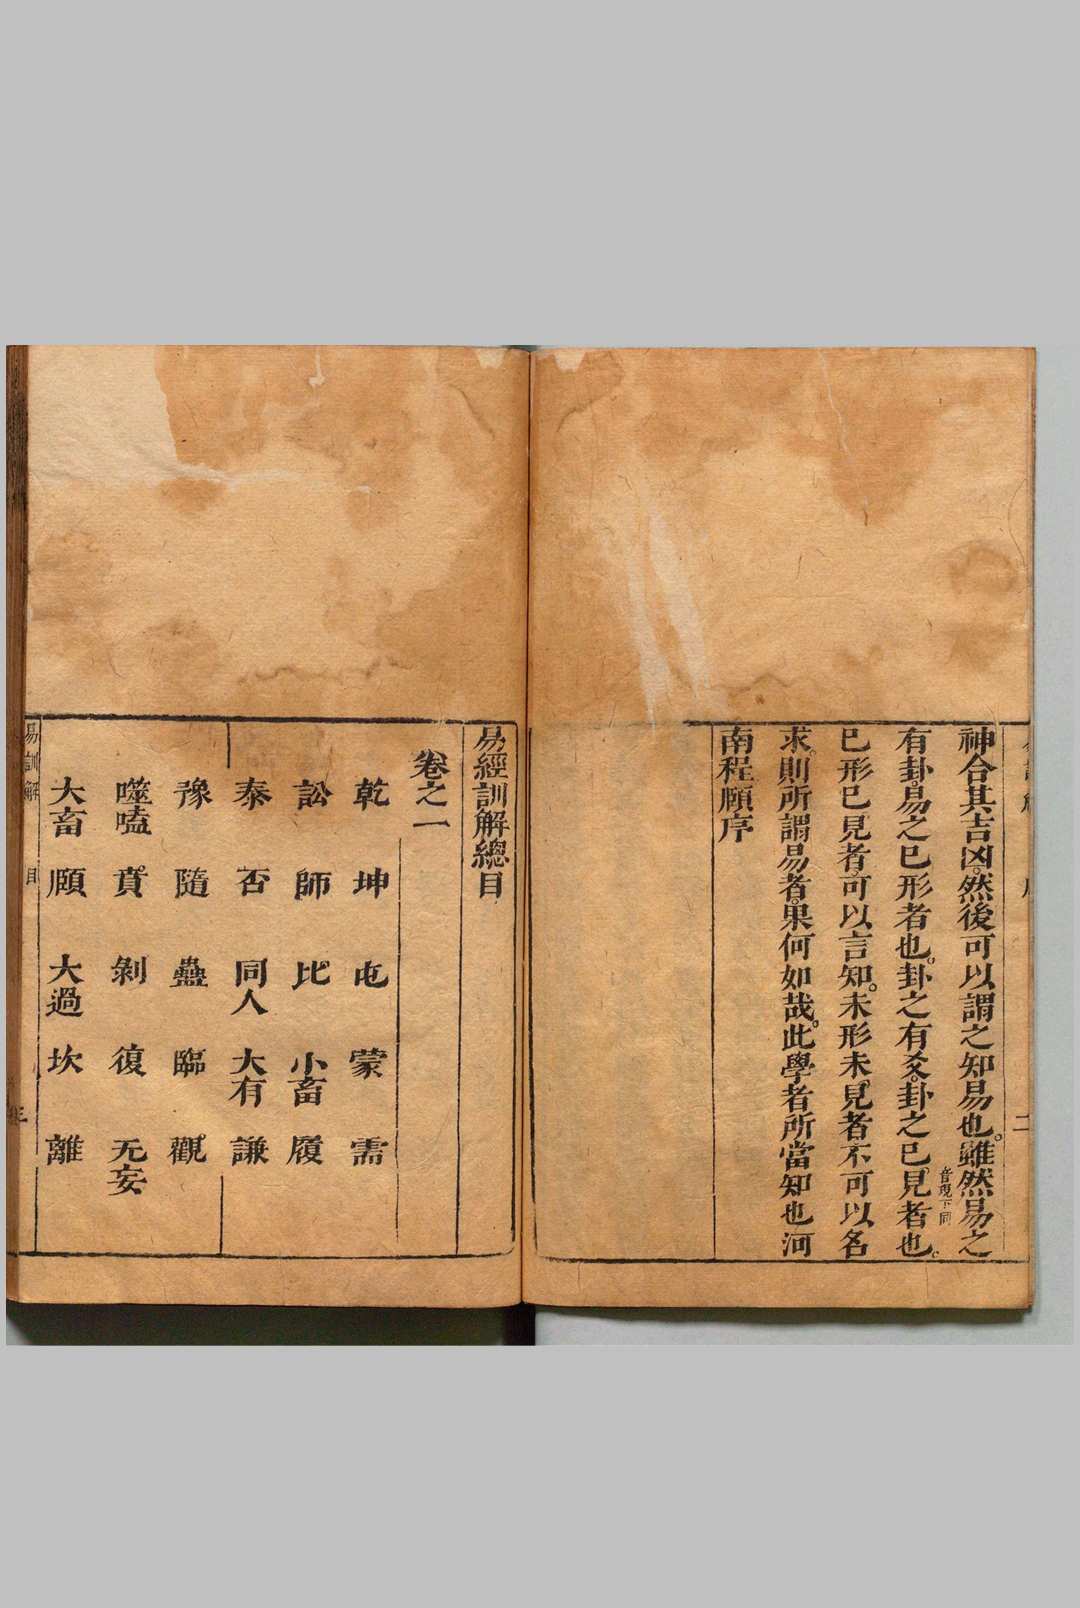 神合其吉凶。然後可以謂之知易也。雖然易之
有卦。易之已形者也。卦之有爻。卦之已見者也。
音現下同
已形已見者。可以言知。未形未見者不可以名
求。則所謂易者。果何如哉。此學者所當知也河
南程頤序
二
易經訓解總目
卷之一
乾 坤 屯 蒙 需
訟 師 比 小畜 履
泰 否 同人 大有 謙
豫 隨 蠱 臨 觀
噬嗑 賁 剝 復 无妄
大畜 頤 大過 坎 離
易訓解 目